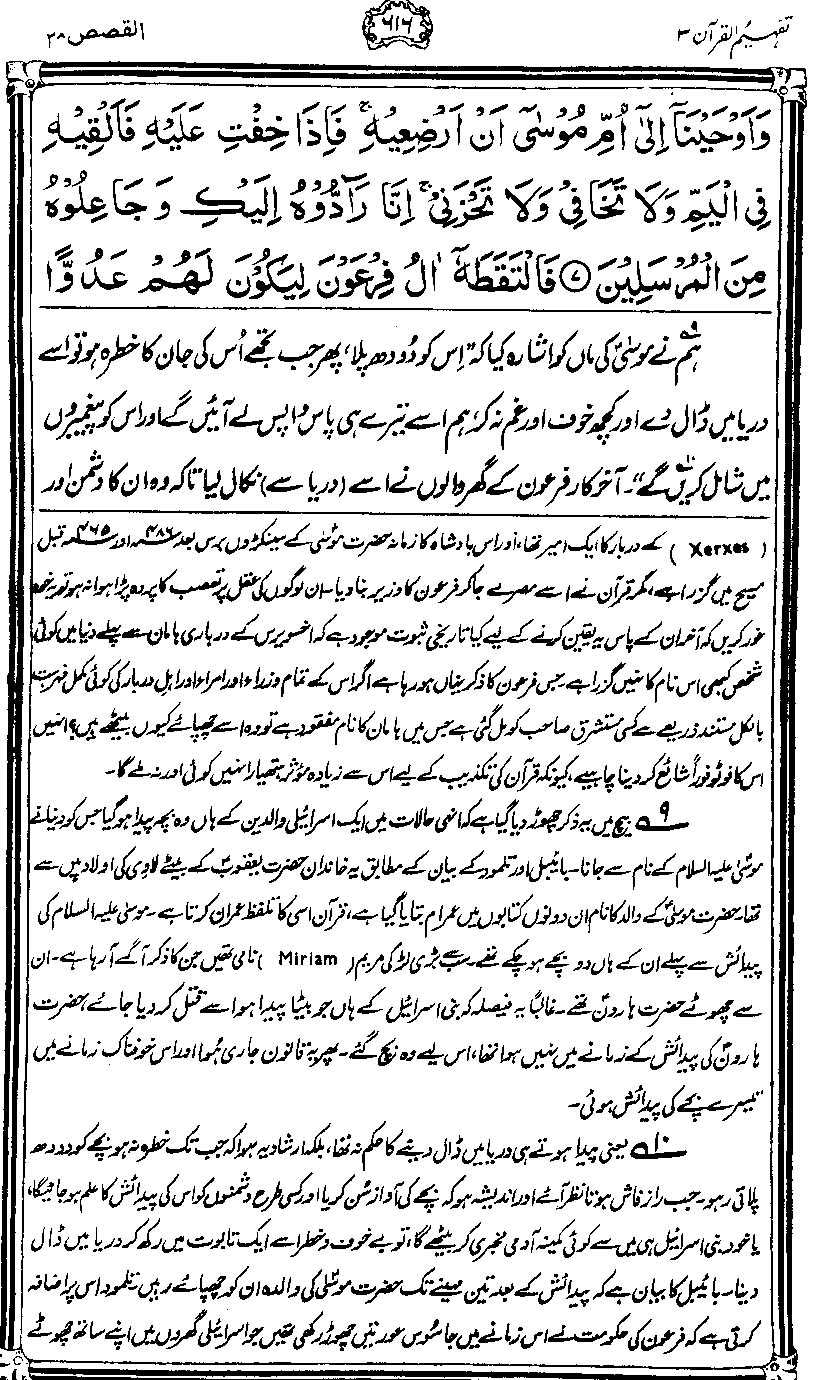 تفہیم القرآن ۳
۶۱۶
القصص ۲۸
وَاَوْحَيْنَآ اِلٰٓى اُمِّ مُوْسٰٓى اَنْ اَرْضِعِيْهِ ۚ فَاِذَا خِفْتِ عَلَيْهِ فَاَلْقِيْهِ
فِى الْيَمِّ وَلَا تَخَافِىْ وَلَا تَحْزَنِىْ ۚ اِنَّا رَآدُّوْهُ اِلَيْكِ وَجَاعِلُوْهُ
مِنَ الْمُرْسَلِيْنَ ﴿۷﴾ فَالْتَقَطَهٗٓ اٰلُ فِرْعَوْنَ لِيَكُوْنَ لَهُمْ عَدُوًّا
ہم نے موسیٰؑ کی ماں کو اشارہ کیا کہ ”اِس کو دُودھ پلا، پھر جب تجھے اُس کی جان کا خطرہ ہو تو اسے
دریا میں ڈال دے اور کچھ خوف اور غم نہ کر، ہم اسے تیرے ہی پاس واپس لے آئیں گے اور اس کو پیغمبروں
میں شامل کریں گے“۔ آخرکار فرعون کے گھر والوں نے اسے (دریا سے) نکال لیا تاکہ وہ ان کا دشمن اور
(Xerxes) کے دربار کا ایک امیر تھا، اور اس بادشاہ کا زمانہ حضرت موسٰی کے سینکڑوں برس بعد ۴۸۶ اور ۴۶۵ قبل
مسیح میں گزرا ہے، مگر قرآن نے اسے مصر لے جا کر فرعون کا وزیر بنا دیا۔ ان لوگوں کی عقل پر تعصب کا پردہ پڑا ہوا نہ ہو تو یہ خود
غور کریں کہ آخر ان کے پاس یہ یقین کرنے کے لیے کیا تاریخی ثبوت موجود ہے کہ اخسویرس کے درباری ہامان سے پہلے دنیا میں کوئی
شخص کبھی اس نام کا نہیں گزرا ہے۔ جس فرعون کا ذکر یہاں ہو رہا ہے اگر اس کے تمام وزراء اور امراء اور اہل دربار کی کوئی مکمل فہرست
بالکل مستند ذریعے سے کسی مستشرق صاحب کو مل گئی ہے جس میں ہامان کا نام مفقود ہے تو وہ اسے چھپائے کیوں بیٹھے ہیں؟ انہیں
اس کا فوٹو فوراً شائع کر دینا چاہیے، کیونکہ قرآن کی تکذیب کے لیے اس سے زیادہ مؤثر ہتھیار انہیں کوئی اور نہ ملے گا۔
۹ بیچ میں یہ ذکر چھوڑ دیا گیا ہے کہ انہی حالات میں ایک اسرائیلی والدین کے ہاں وہ بچہ پیدا ہو گیا جس کو دنیا نے
موسٰی علیہ السلام کے نام سے جانا۔ بائیبل اور تلمود کے بیان کے مطابق یہ خاندان حضرت یعقوبؑ کے بیٹے لاوی کی اولاد میں سے
تھا۔ حضرت موسٰیؑ کے والد کا نام ان دونوں کتابوں میں عمرام بتایا گیا ہے، قرآن اسی کا تلفظ عمران کرتا ہے۔ موسٰی علیہ السلام کی
پیدائش سے پہلے ان کے ہاں دو بچے ہو چکے تھے۔ سب سے بڑی لڑکی مریم (Miriam) نامی تھیں جن کا ذکر آگے آ رہا ہے۔ ان
سے چھوٹے حضرت ہارونؑ تھے۔ غالباً یہ فیصلہ کہ بنی اسرائیل کے ہاں جو بیٹا پیدا ہو اسے قتل کر دیا جائے، حضرت
ہارونؑ کی پیدائش کے زمانے میں نہیں ہوا تھا، اس لیے وہ بچ گئے۔ پھر یہ قانون جاری ہُوا اور اس خوفناک زمانے میں
تیسرے بچے کی پیدائش ہوئی۔
۱۰ یعنی پیدا ہوتے ہی دریا میں ڈال دینے کا حکم نہ تھا، بلکہ ارشاد یہ ہوا کہ جب تک خطرہ نہ ہو بچے کو دودھ
پلاتی رہو۔ جب راز فاش ہوتا نظر آئے اور اندیشہ ہو کہ بچے کی آواز سُن کر یا اور کسی طرح دشمنوں کو اس کی پیدائش کا علم ہو جائیگا،
یا خود بنی اسرائیل ہی میں سے کوئی کمینہ آدمی مخبری کر بیٹھے گا، تو بے خوف و خطر اسے ایک تابوت میں رکھ کر دریا میں ڈال
دینا۔ بائیبل کا بیان ہے کہ پیدائش کے بعد تین مہینے تک حضرت موسٰی کی والدہ ان کو چھپائے رہیں۔ تلمود اس پر اضافہ
کرتی ہے کہ فرعون کی حکومت نے اس زمانے میں جاسوس عورتیں چھوڑ رکھی تھیں جو اسرائیلی گھروں میں اپنے ساتھ چھوٹے